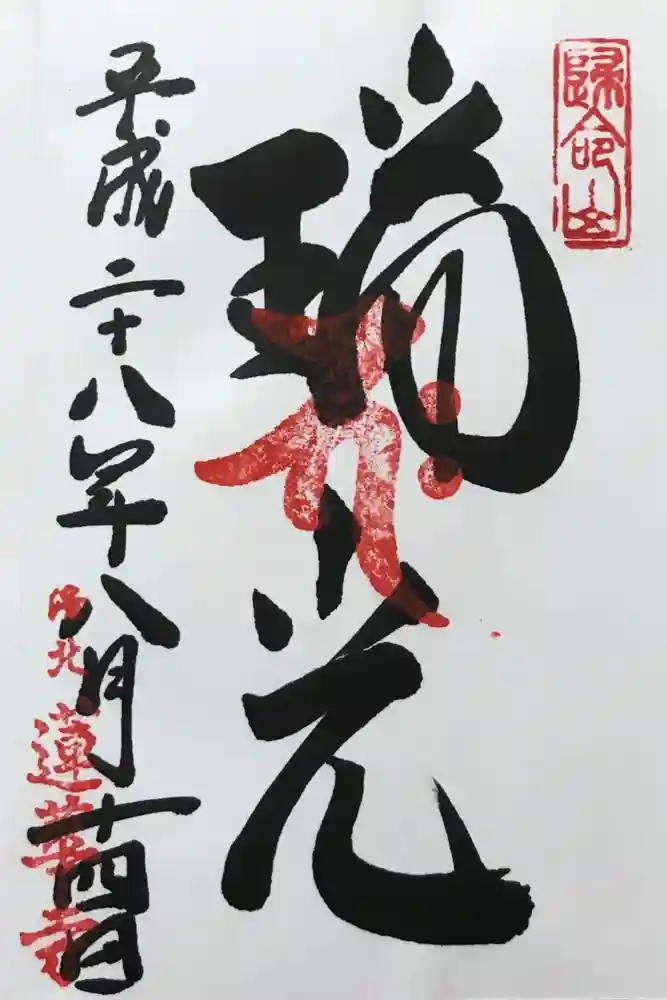 歸命山
瑞光
平成二十八年八月十四日
陽北
蓮華寺